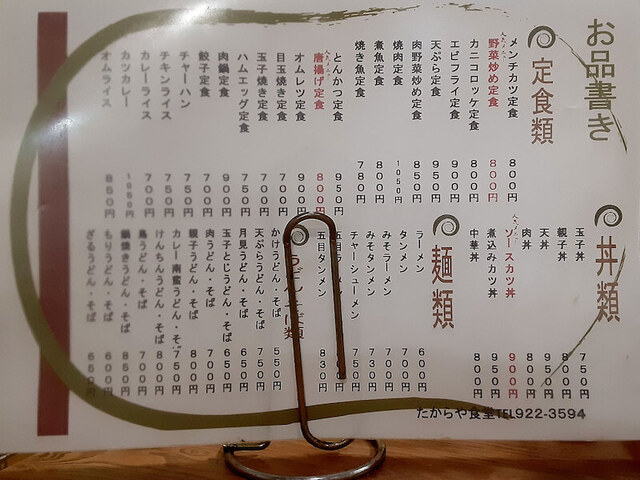 お品書き
定食類
メンチカツ定食 800円
野菜炒め定食 800円
カニコロッケ定食 800円
エビフライ定食 900円
天ぷら定食 950円
肉野菜炒め定食 850円
焼肉定食 1050円
煮魚定食 800円
焼き魚定食 780円
とんかつ定食 950円
唐揚げ定食 800円
オムレツ定食 900円
目玉焼き定食 700円
玉子焼き定食 700円
ハムエッグ定食 750円
肉鍋定食 900円
餃子定食 700円
チャーハン 750円
チキンライス 750円
カレーライス 700円
カツカレー 1050円
オムライス 850円
丼類
玉子丼 750円
親子丼 800円
天丼 950円
肉丼 850円
ソースカツ丼 900円
煮込みカツ丼 950円
中華丼 800円
麺類
ラーメン 600円
タンメン 700円
みそラーメン 700円
みそタンメン 730円
チャーシューメン 750円
五目ラーメン
五目タンメン 830円
うどん・そば類
かけうどん・そば 550円
天ぷらうどん・そば 750円
月見うどん・そば 650円
玉子とじうどん・そば 650円
肉うどん・そば 700円
親子うどん・そば 800円
カレー南蛮うどん・そば 750円
けんちんうどん・そば 800円
鳥うどん・そば 700円
鍋焼きうどん・そば 850円
もりうどん・そば 600円
ざるうどん・そば 650円
たからや食堂TEL922-3594